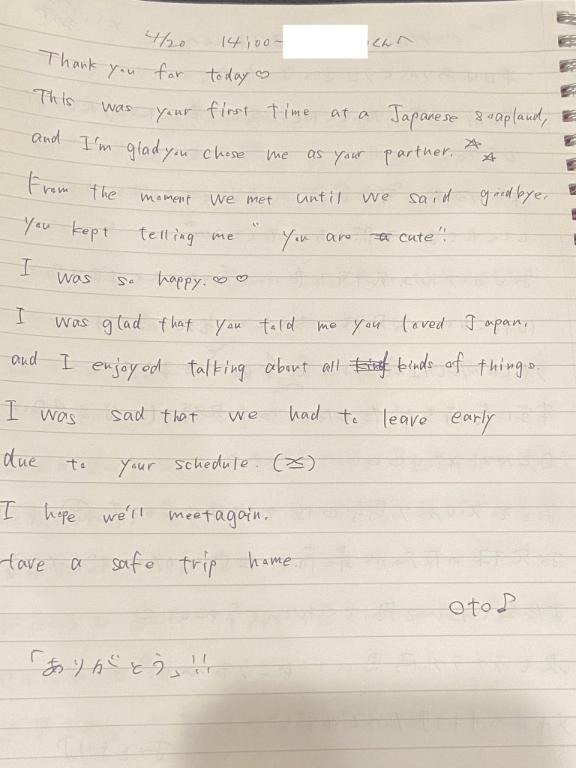 4/20 14:00- くんへ
Thank you for today♡
This was your first time at a Japanese soapland,
and I'm glad you chose me as your partner. ☆☆
From the moment we met until we said goodbye,
you kept telling me "you are cute".
I was so happy. ♡♡
I was glad that you told me you loved Japan,
and I enjoyed talking about all kinds of things.
I was sad that we had to leave early
due to your schedule. (>_<)
I hope we'll meet again.
Have a safe trip home.
Oto♪
「ありがとう」!!